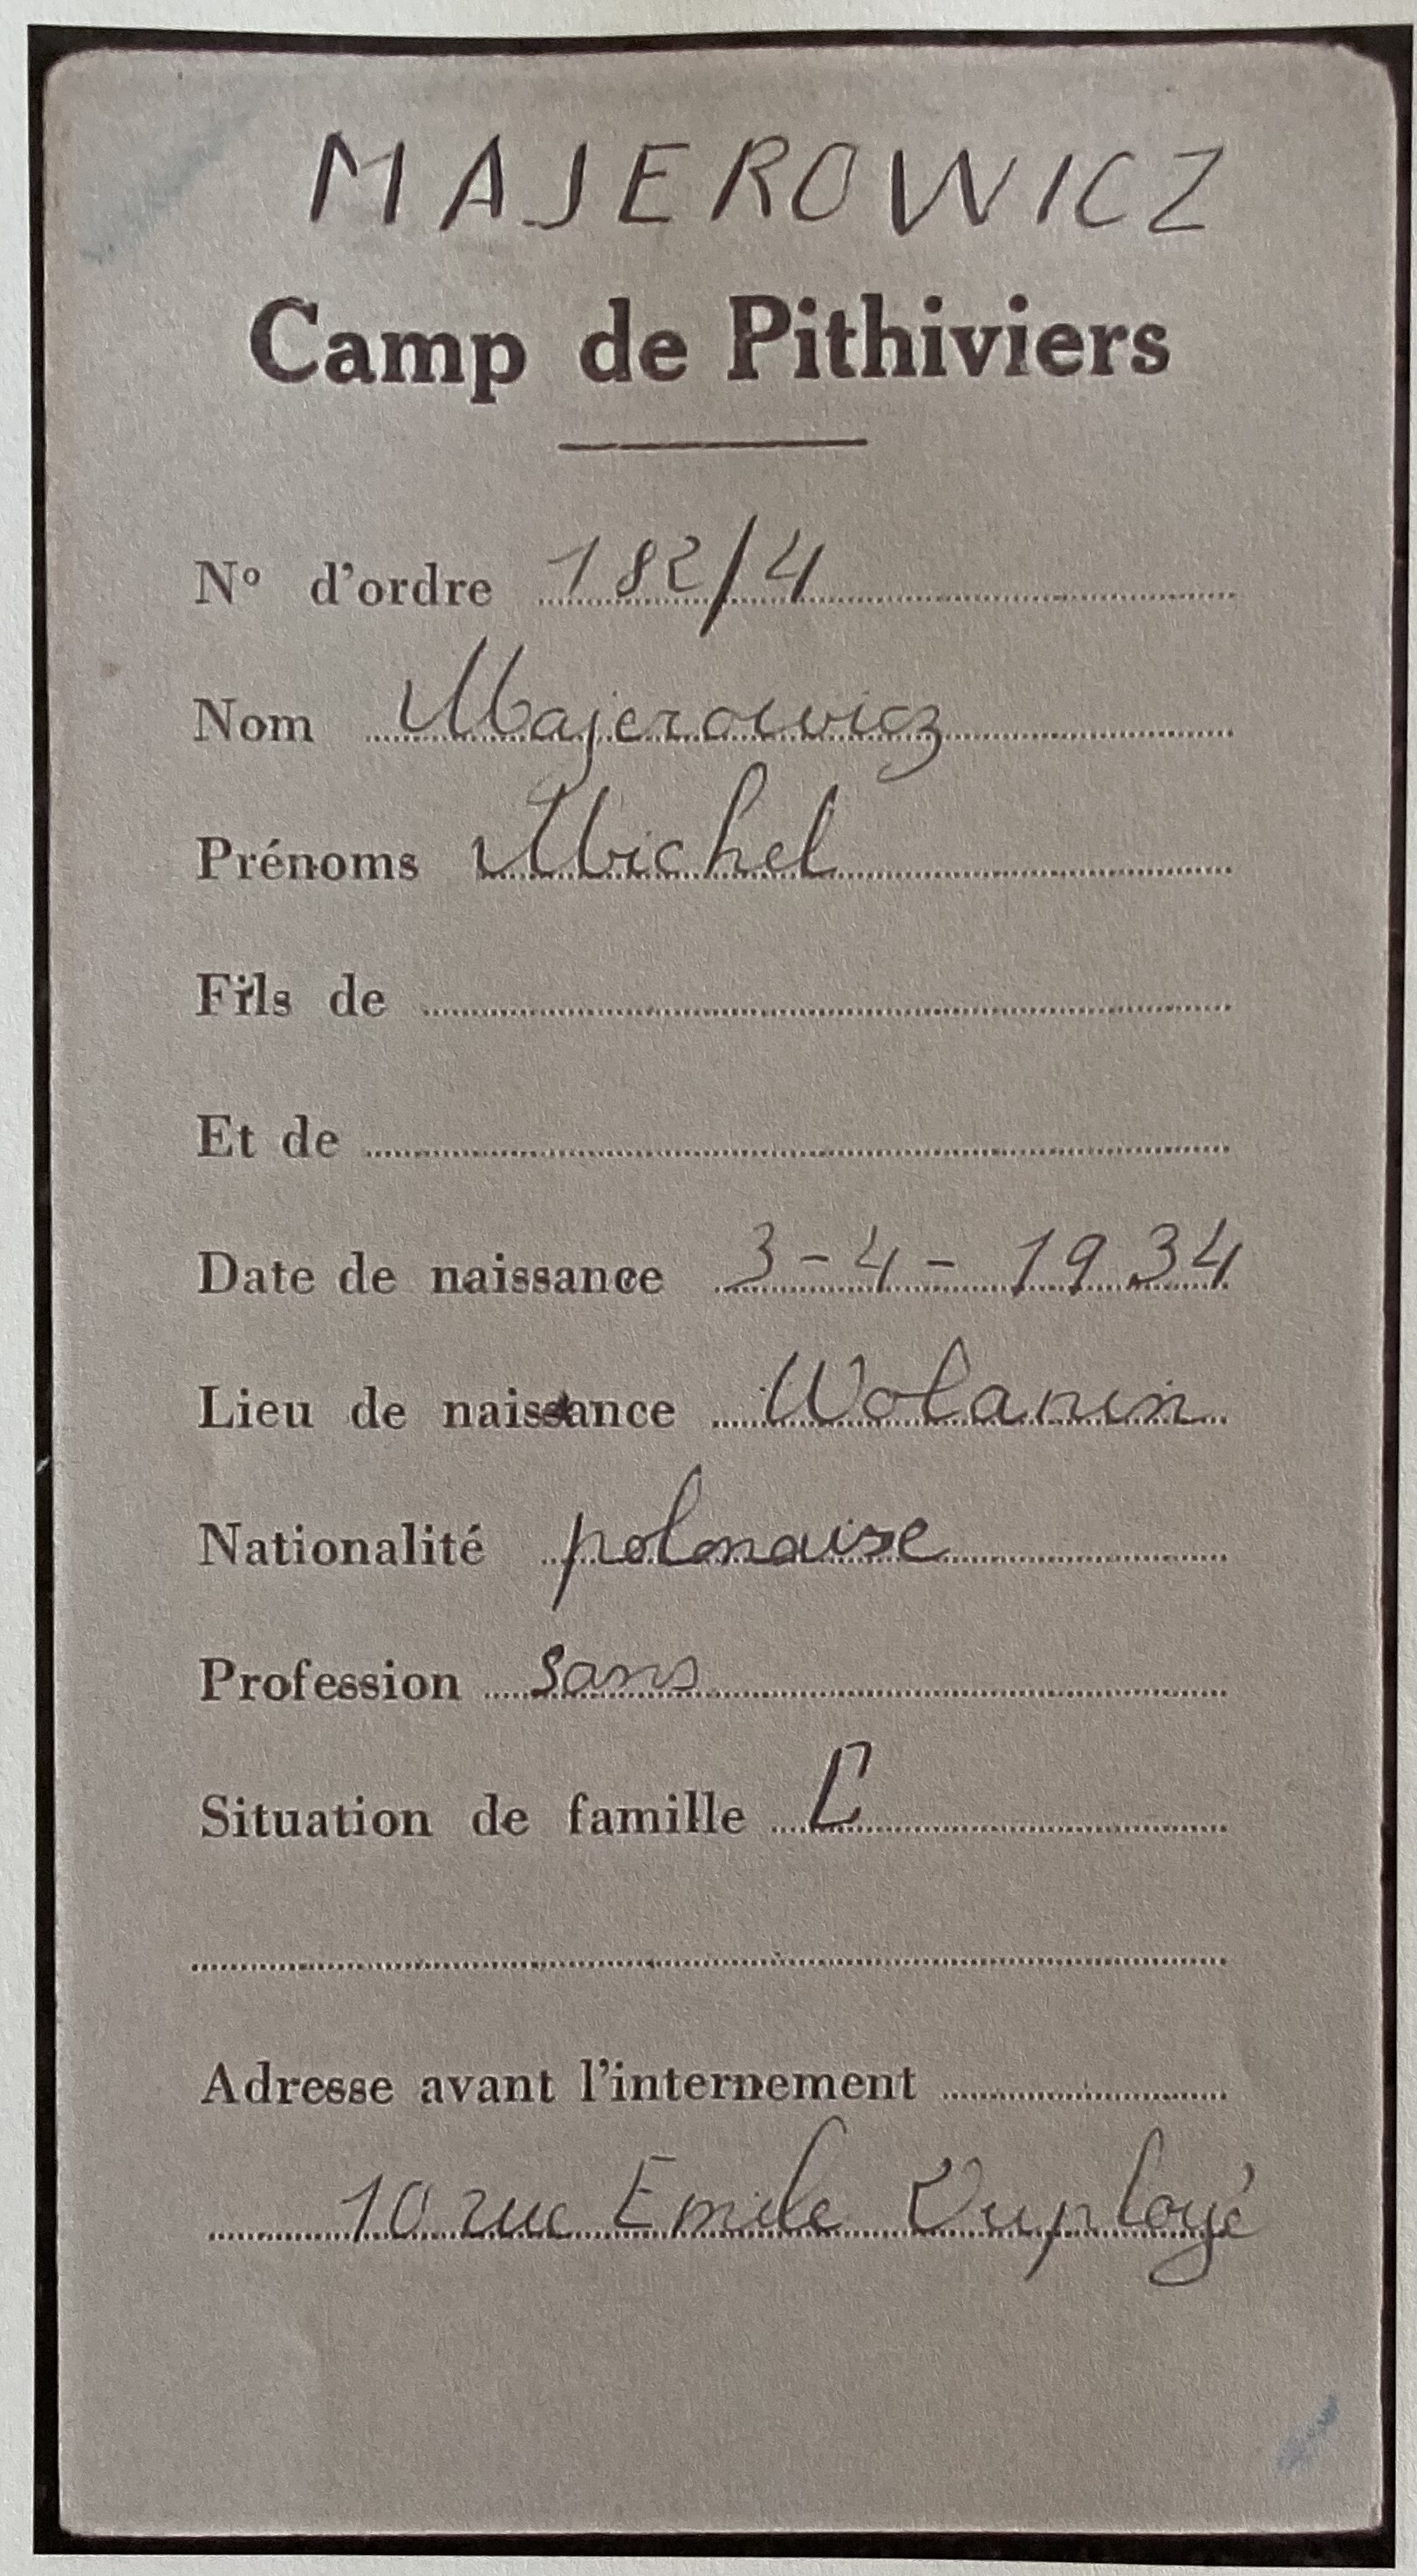 MAJEROWICZ
Camp de Pithiviers
N° d'ordre 182/4
Nom Majerowicz
Prénoms Michel
Fils de
Et de
Date de naissance 3-4-1934
Lieu de naissance Wolanin
Nationalité polonaise
Profession sans
Situation de famille C
Adresse avant l'internement
10 rue Emile Duployé